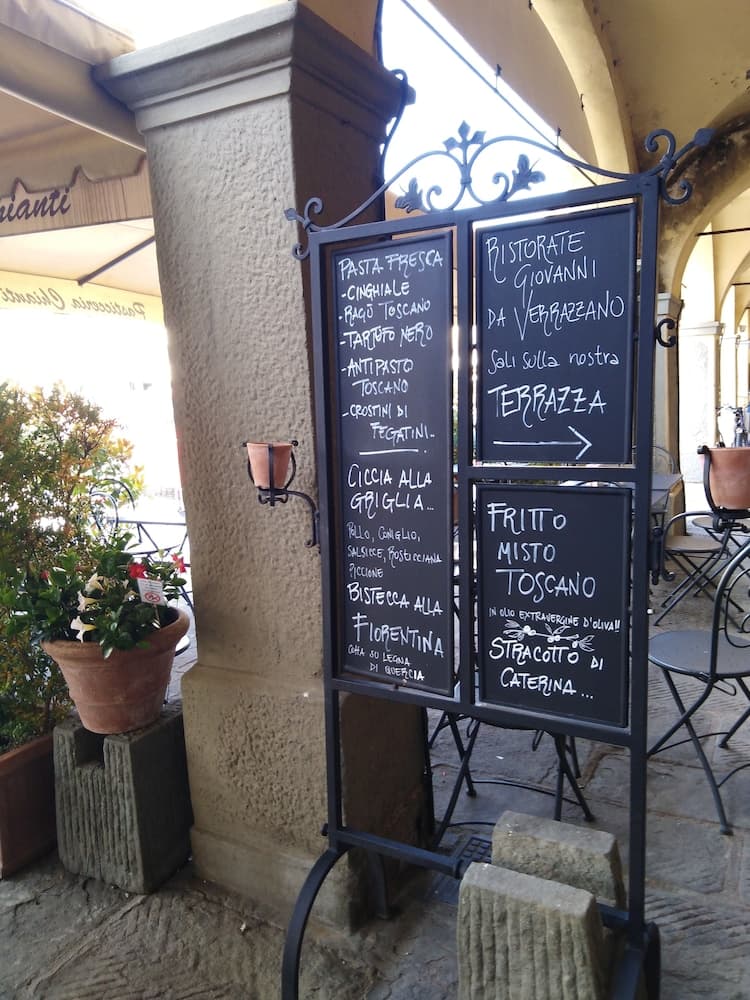 Pasticceria Chianti
PASTA FRESCA
-CINGHIALE
-RAGÙ TOSCANO
-TARTUFO NERO
-ANTIPASTO
TOSCANO
-CROSTINI DI
FEGATINI..
CICCIA ALLA
GRIGLIA...
POLLO, CONIGLIO,
SALSICCE, ROSTICCIANA
PICCIONE
BISTECCA ALLA
FIORENTINA
COTTA SU LEGNA
DI QUERCIA
RISTORATE
GIOVANNI
DA VERRAZZANO
Sali sulla nostra
TERRAZZA
FRITTO
MISTO
TOSCANO
IN OLIO EXTRAVERGINE D'OLIVA!!
STRACOTTO DI
CATERINA...